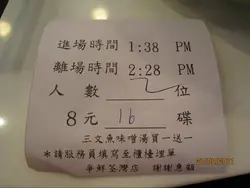 進場時間 1:38 PM
離場時間 2:28 PM
人數 2 位
8元 16 碟
三文魚味噌湯買一送一
*請服務員填寫至櫃檯埋單
爭鮮荃灣店 謝謝惠顧